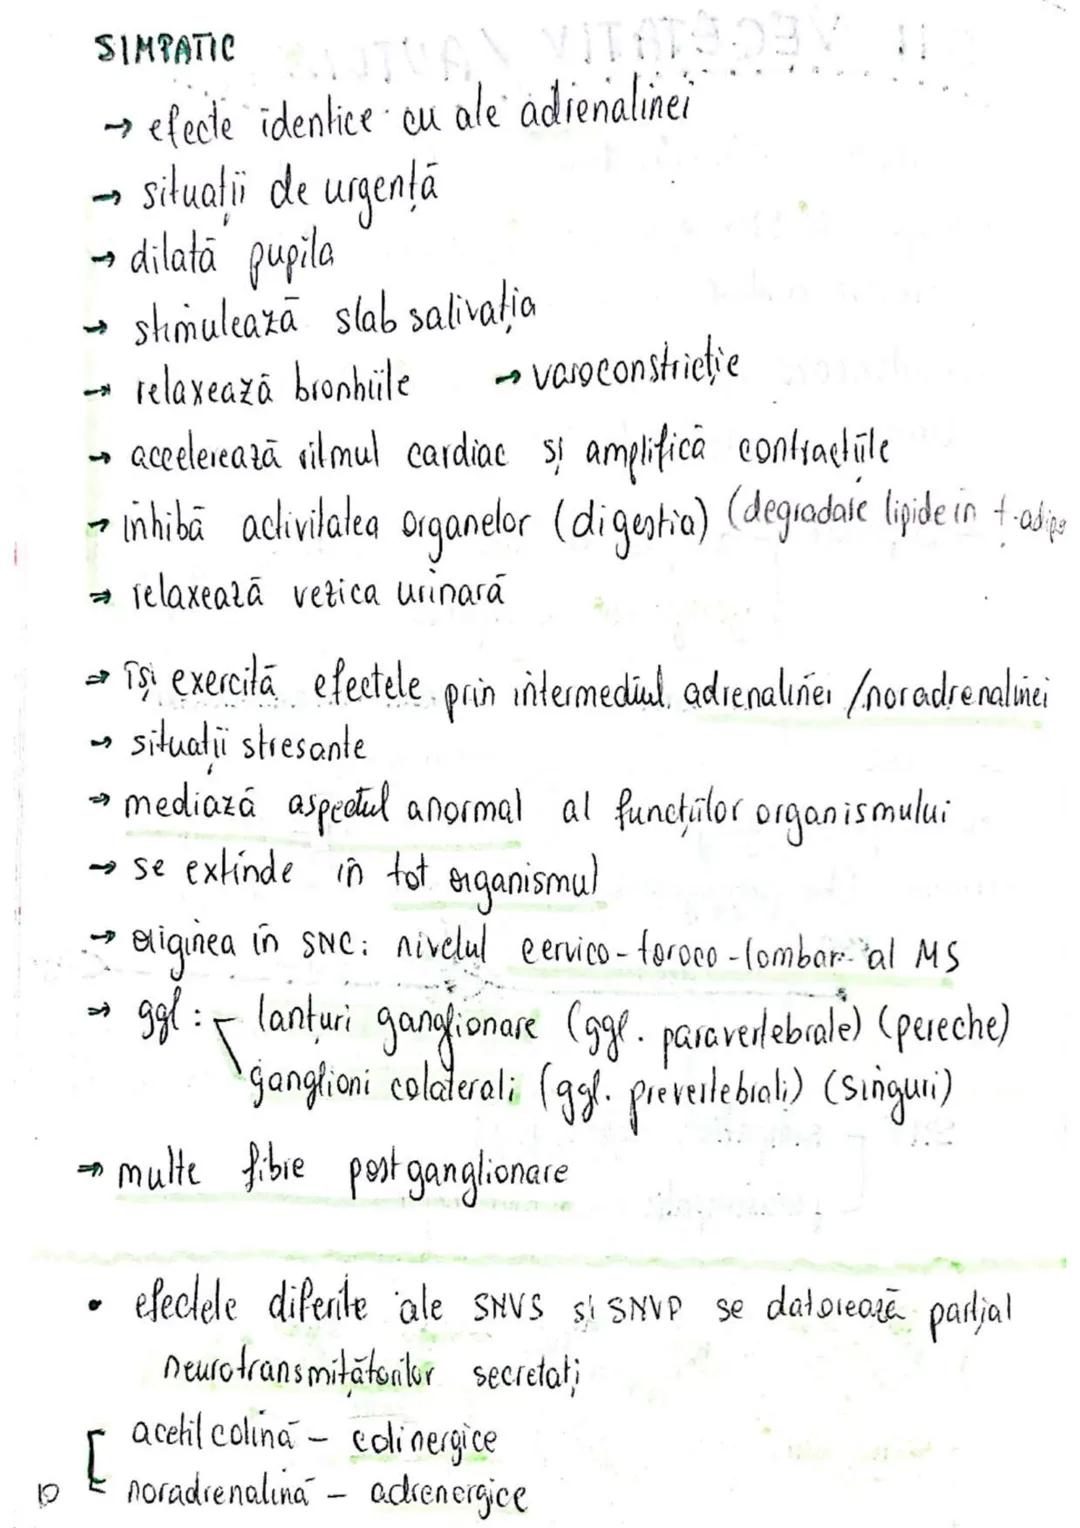 SIMPATIC
→ efecte identice cu ale adrenalinei
→ situații de urgență
→ dilată pupila
→ stimulează slab salivația
→ relaxează bronhiile → vasoconstricție
→ accelerează ritmul cardiac și amplifică contracțiile
→ inhibă activitatea organelor (digestia) (degradare lipide in t. adipos
→ relaxează vezica urinară
→ își exercită efectele prin intermediul adrenalinei / noradrenalinei
→ situații stresante
→ mediază aspectul anormal al funcțiilor organismului
→ se extinde in tot organismul
→ originea în SNC: nivelul cervico-toroco-lombar al MS
→ ggl: lanțuri ganglionare (ggl. paravertebrale) (pereche)
ganglioni colaterali (ggl. prevertebrali) (singuri)
→ multe fibre postganglionare
• efectele diferite ale SNVS și SNVP se datorează parțial
neurotransmițătorilor secretați
acetilcolină – colinergice
noradrenalină – adrenergice